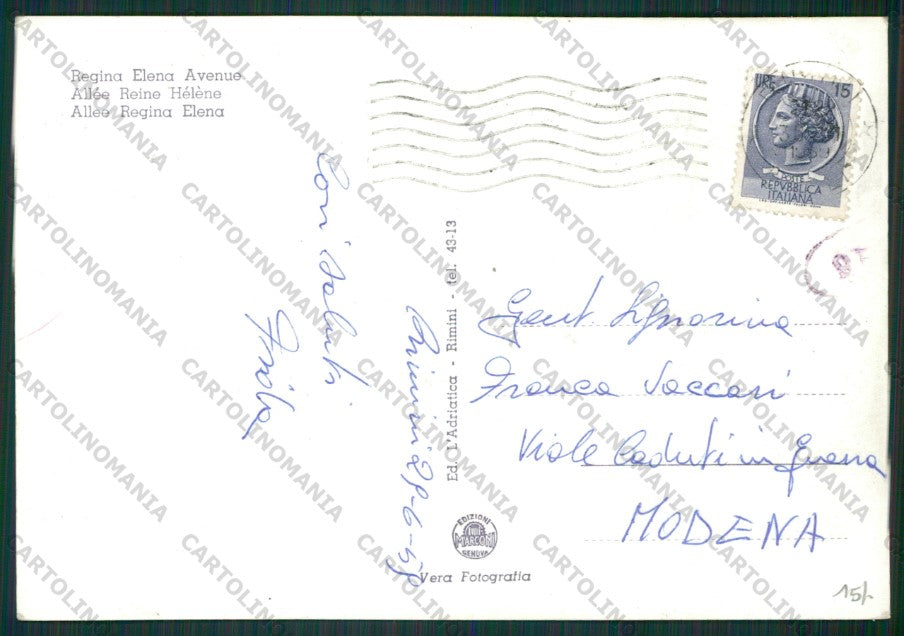 Regina Elena Avenue
Allée Reine Hélène
Allee Regina Elena
LIRE 15
POSTE
REPVBBLICA
ITALIANA
Cari Saluti
Rimini
Ed. L'Adriatica - Rimini - tel. 43-13
Gent Signorina
Franca Vaccari
Viale Caduti in Guerra
MODENA
EDIZIONI
MARCONI
GENOVA
Vera Fotografia
15/-
CARTOLINOMANIA